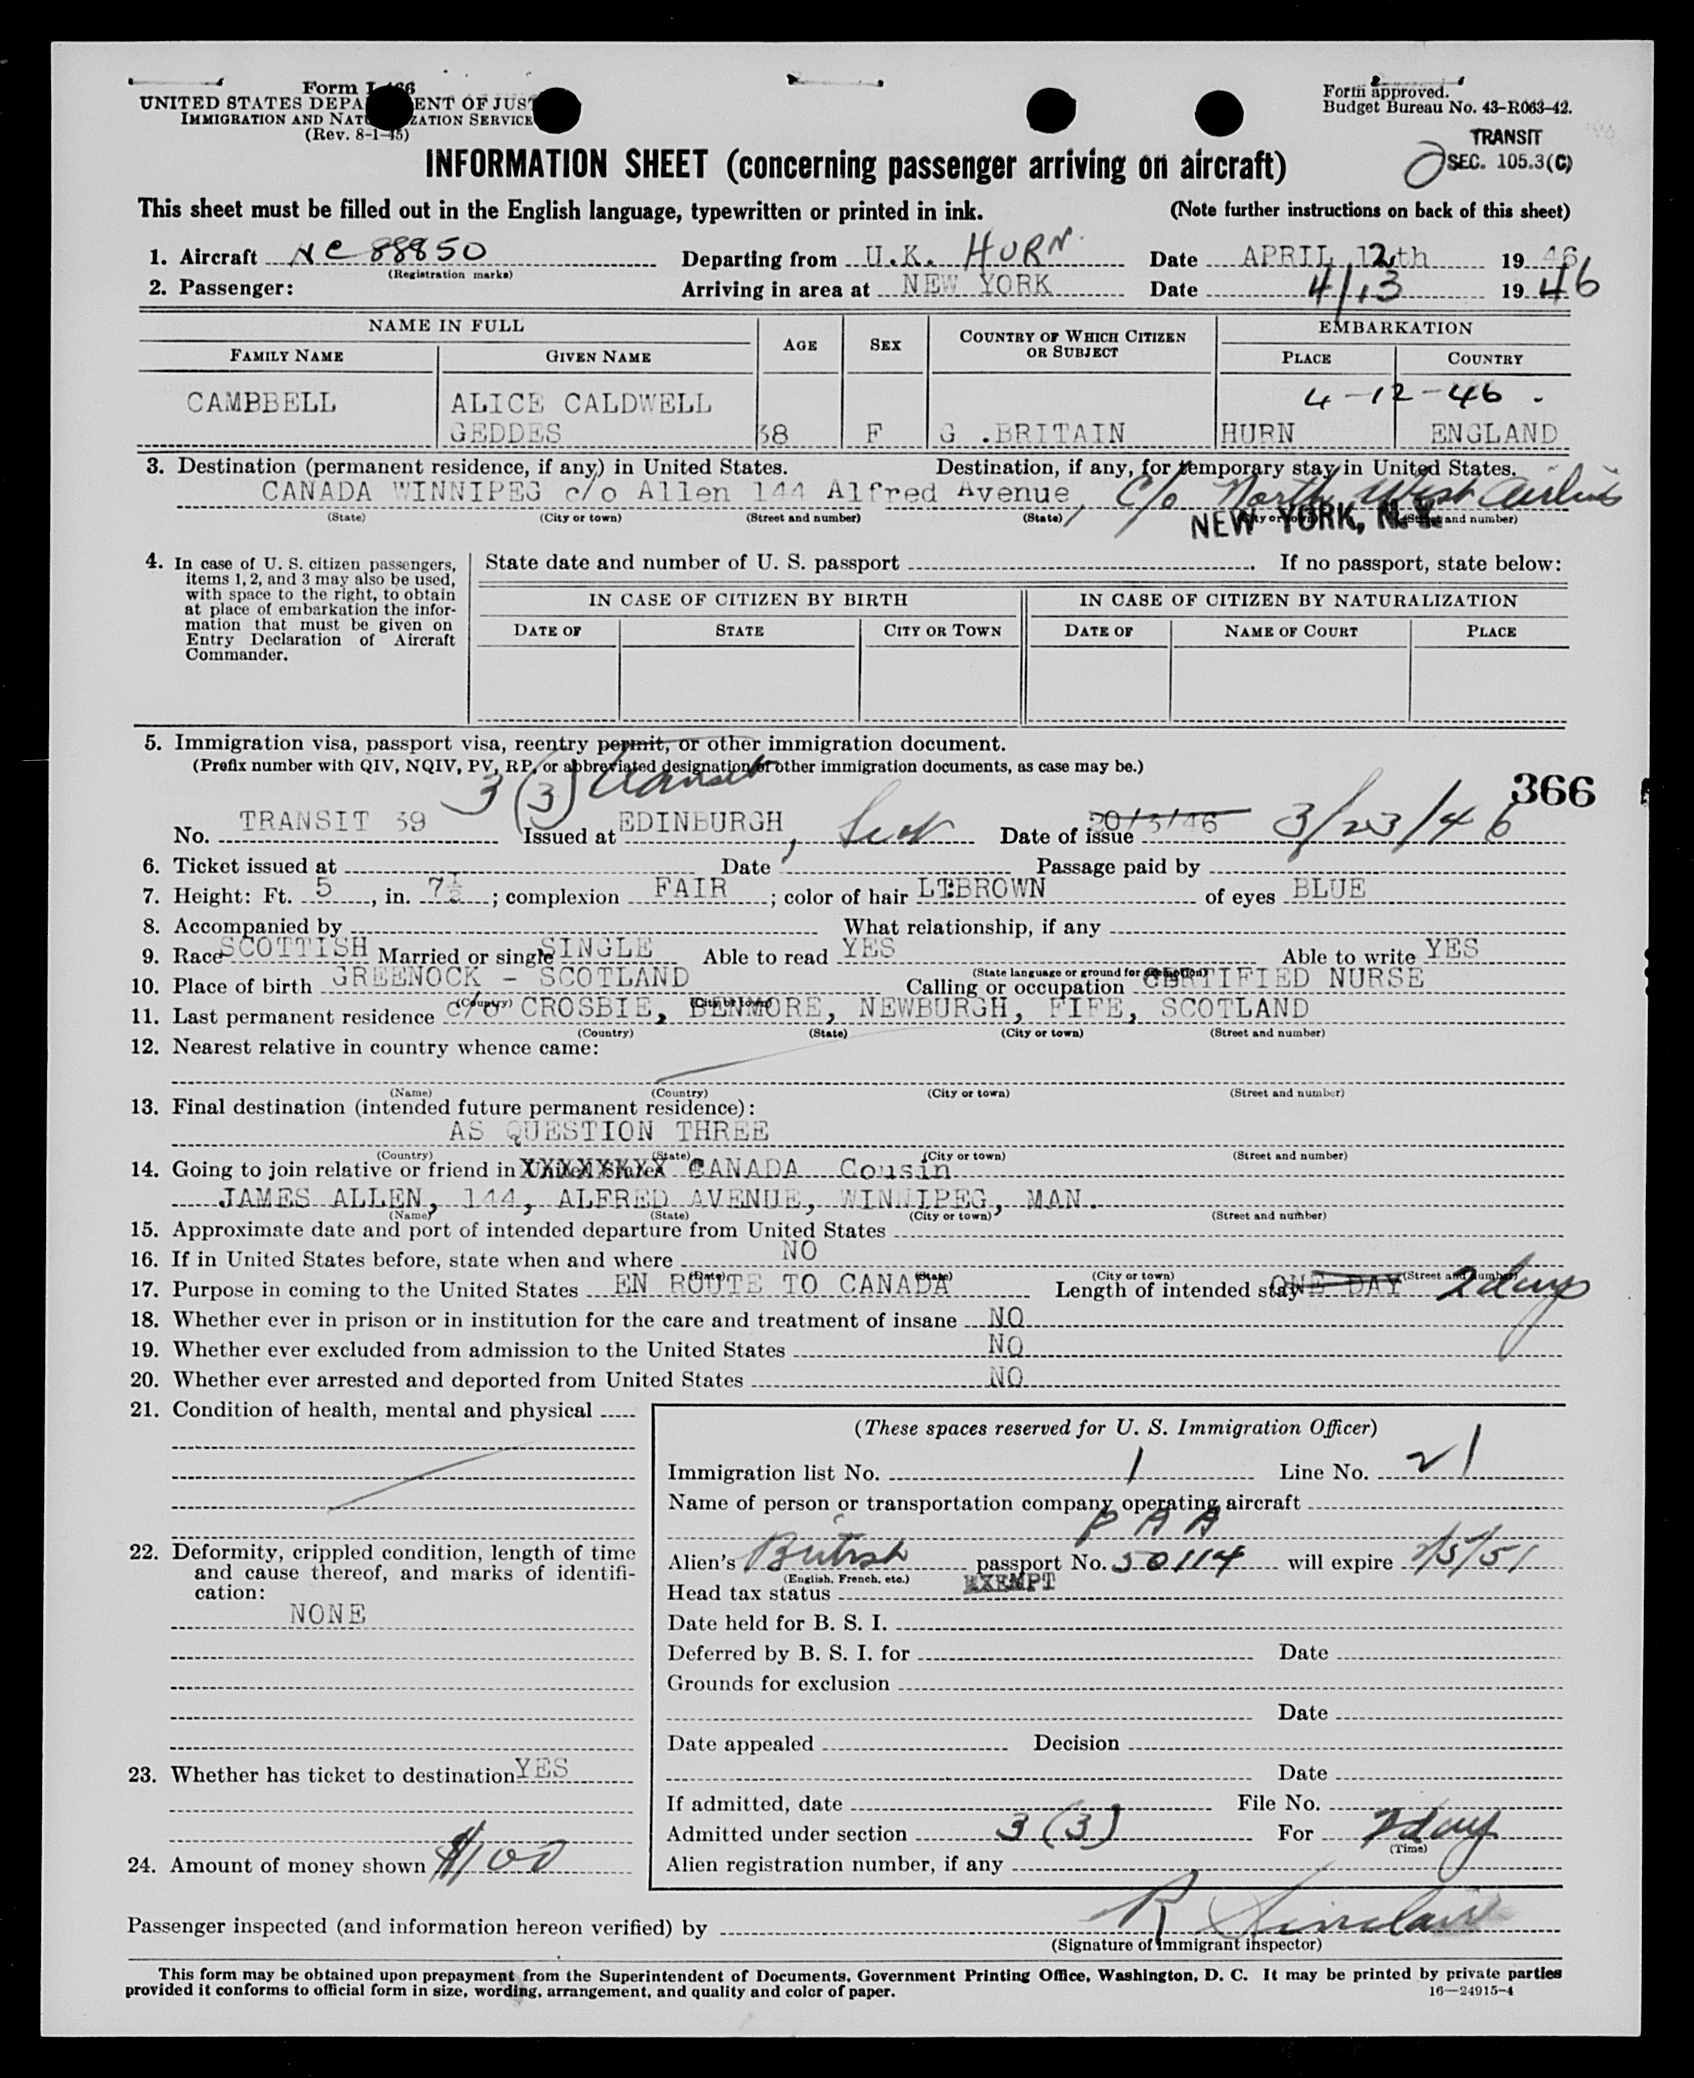 Form I-466
UNITED STATES DEPA ENT OF JUST
IMMIGRATION AND NAT ZATION SERVICE
(Rev. 8-1-45)
Form approved.
Budget Bureau No. 43-R063-42.
TRANSIT
SEC. 105.3(C)
INFORMATION SHEET (concerning passenger arriving on aircraft)
This sheet must be filled out in the English language, typewritten or printed in ink. (Note further instructions on back of this sheet)
1. Aircraft NC 88850 Departing from U.K. HURN Date APRIL 12th 19 46
(Registration marks)
2. Passenger: Arriving in area at NEW YORK Date 4/13 19 46
NAME IN FULL AGE SEX COUNTRY OF WHICH CITIZEN OR SUBJECT EMBARKATION
FAMILY NAME GIVEN NAME PLACE COUNTRY
4-12-46.
CAMPBELL ALICE CALDWELL
GEDDES 38 F G .BRITAIN HURN ENGLAND
3. Destination (permanent residence, if any) in United States. Destination, if any, for temporary stay in United States.
CANADA WINNIPEG c/o Allen 144 Alfred Avenue, c/o North West Airlines
(State) (City or town) (Street and number) (State) (City or town) (Street and number)
NEW YORK, N.Y.
4. In case of U. S. citizen passengers, items 1, 2, and 3 may also be used, with space to the right, to obtain at place of embarkation the information that must be given on Entry Declaration of Aircraft Commander.
State date and number of U. S. passport . If no passport, state below:
IN CASE OF CITIZEN BY BIRTH IN CASE OF CITIZEN BY NATURALIZATION
DATE OF STATE CITY OR TOWN DATE OF NAME OF COURT PLACE
5. Immigration visa, passport visa, reentry permit, or other immigration document.
(Prefix number with QIV, NQIV, PV, RP, or abbreviated designation of other immigration documents, as case may be.)
3 (3) transit
366
No. TRANSIT 39 Issued at EDINBURGH, Scot Date of issue 20/3/46 3/23/46
6. Ticket issued at Date Passage paid by
7. Height: Ft. 5, in. 7½; complexion FAIR; color of hair LT.BROWN of eyes BLUE
8. Accompanied by What relationship, if any
9. Race SCOTTISH Married or single SINGLE Able to read YES Able to write YES
(State language or ground for exemption)
10. Place of birth GREENOCK - SCOTLAND Calling or occupation CERTIFIED NURSE
(Country) (City or town)
11. Last permanent residence c/o CROSBIE, BENMORE, NEWBURGH, FIFE, SCOTLAND
(Country) (State) (City or town) (Street and number)
12. Nearest relative in country whence came:
(Name) (Country) (City or town) (Street and number)
13. Final destination (intended future permanent residence):
AS QUESTION THREE
(Country) (State) (City or town) (Street and number)
14. Going to join relative or friend in United States XXXXXXXX CANADA Cousin
JAMES ALLEN, 144, ALFRED AVENUE, WINNIPEG, MAN.
(Name) (State) (City or town) (Street and number)
15. Approximate date and port of intended departure from United States
16. If in United States before, state when and where NO
(Date) (State) (City or town) (Street and number)
17. Purpose in coming to the United States EN ROUTE TO CANADA Length of intended stay ONE DAY 2 days
18. Whether ever in prison or in institution for the care and treatment of insane NO
19. Whether ever excluded from admission to the United States NO
20. Whether ever arrested and deported from United States NO
21. Condition of health, mental and physical
22. Deformity, crippled condition, length of time and cause thereof, and marks of identification:
NONE
23. Whether has ticket to destination YES
24. Amount of money shown $100
(These spaces reserved for U. S. Immigration Officer)
Immigration list No. 1 Line No. 21
Name of person or transportation company operating aircraft
P A A
Alien's British passport No. 50114 will expire 2/5/51
(English, French, etc.)
Head tax status EXEMPT
Date held for B. S. I.
Deferred by B. S. I. for Date
Grounds for exclusion
Date
Date appealed Decision
Date
If admitted, date File No.
Admitted under section 3 (3) For 2 days
(Time)
Alien registration number, if any
Passenger inspected (and information hereon verified) by R Sinclair
(Signature of immigrant inspector)
This form may be obtained upon prepayment from the Superintendent of Documents, Government Printing Office, Washington, D. C. It may be printed by private parties
provided it conforms to official form in size, wording, arrangement, and quality and color of paper. 16—24915-4